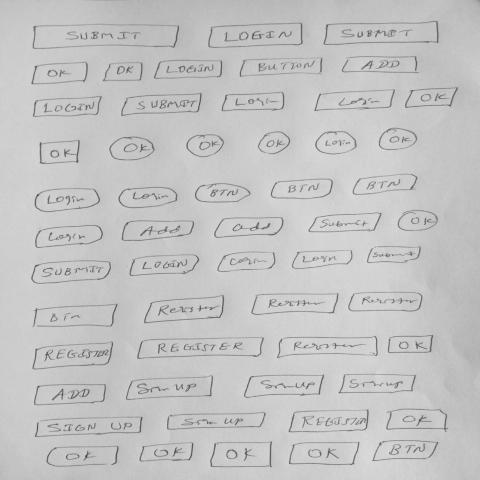 SUBMIT LOGIN SUBMIT
OK OK LOGIN BUTTON ADD
LOGIN SUBMIT Login Login OK
OK OK OK OK Login OK
Login Login BTN BTN BTN
Login Add add Submit OK
SUBMIT LOGIN Login Login Submit
Btn Register Register Register
REGISTER REGISTER Register OK
ADD Sign up Sign up Sign up
SIGN UP Sign up REGISTER OK
OK OK OK OK BTN